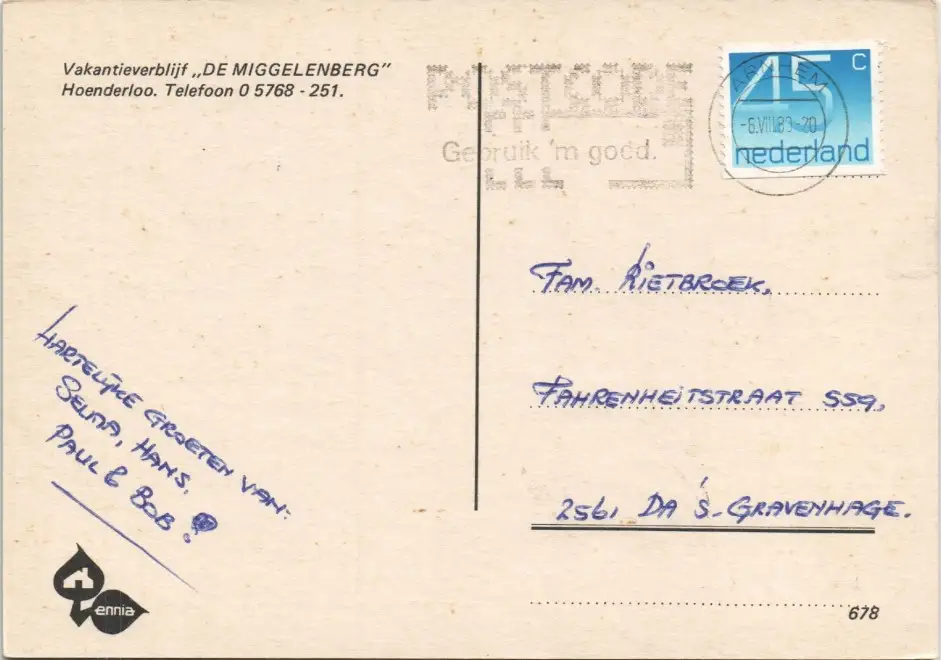 Vakantieverblijf „DE MIGGELENBERG”
Hoenderloo. Telefoon 0 5768 - 251.
POSTCODE
Gebruik 'm goed.
ARNHEM
-6.VIII.80-20
45 C
nederland
FAM. RIETBROEK,
FAHRENHEITSTRAAT 559,
2561 DA 's-GRAVENHAGE.
HARTELIJKE GROETEN VAN:
SELMA, HANS,
PAUL & BOB!
ennia
678